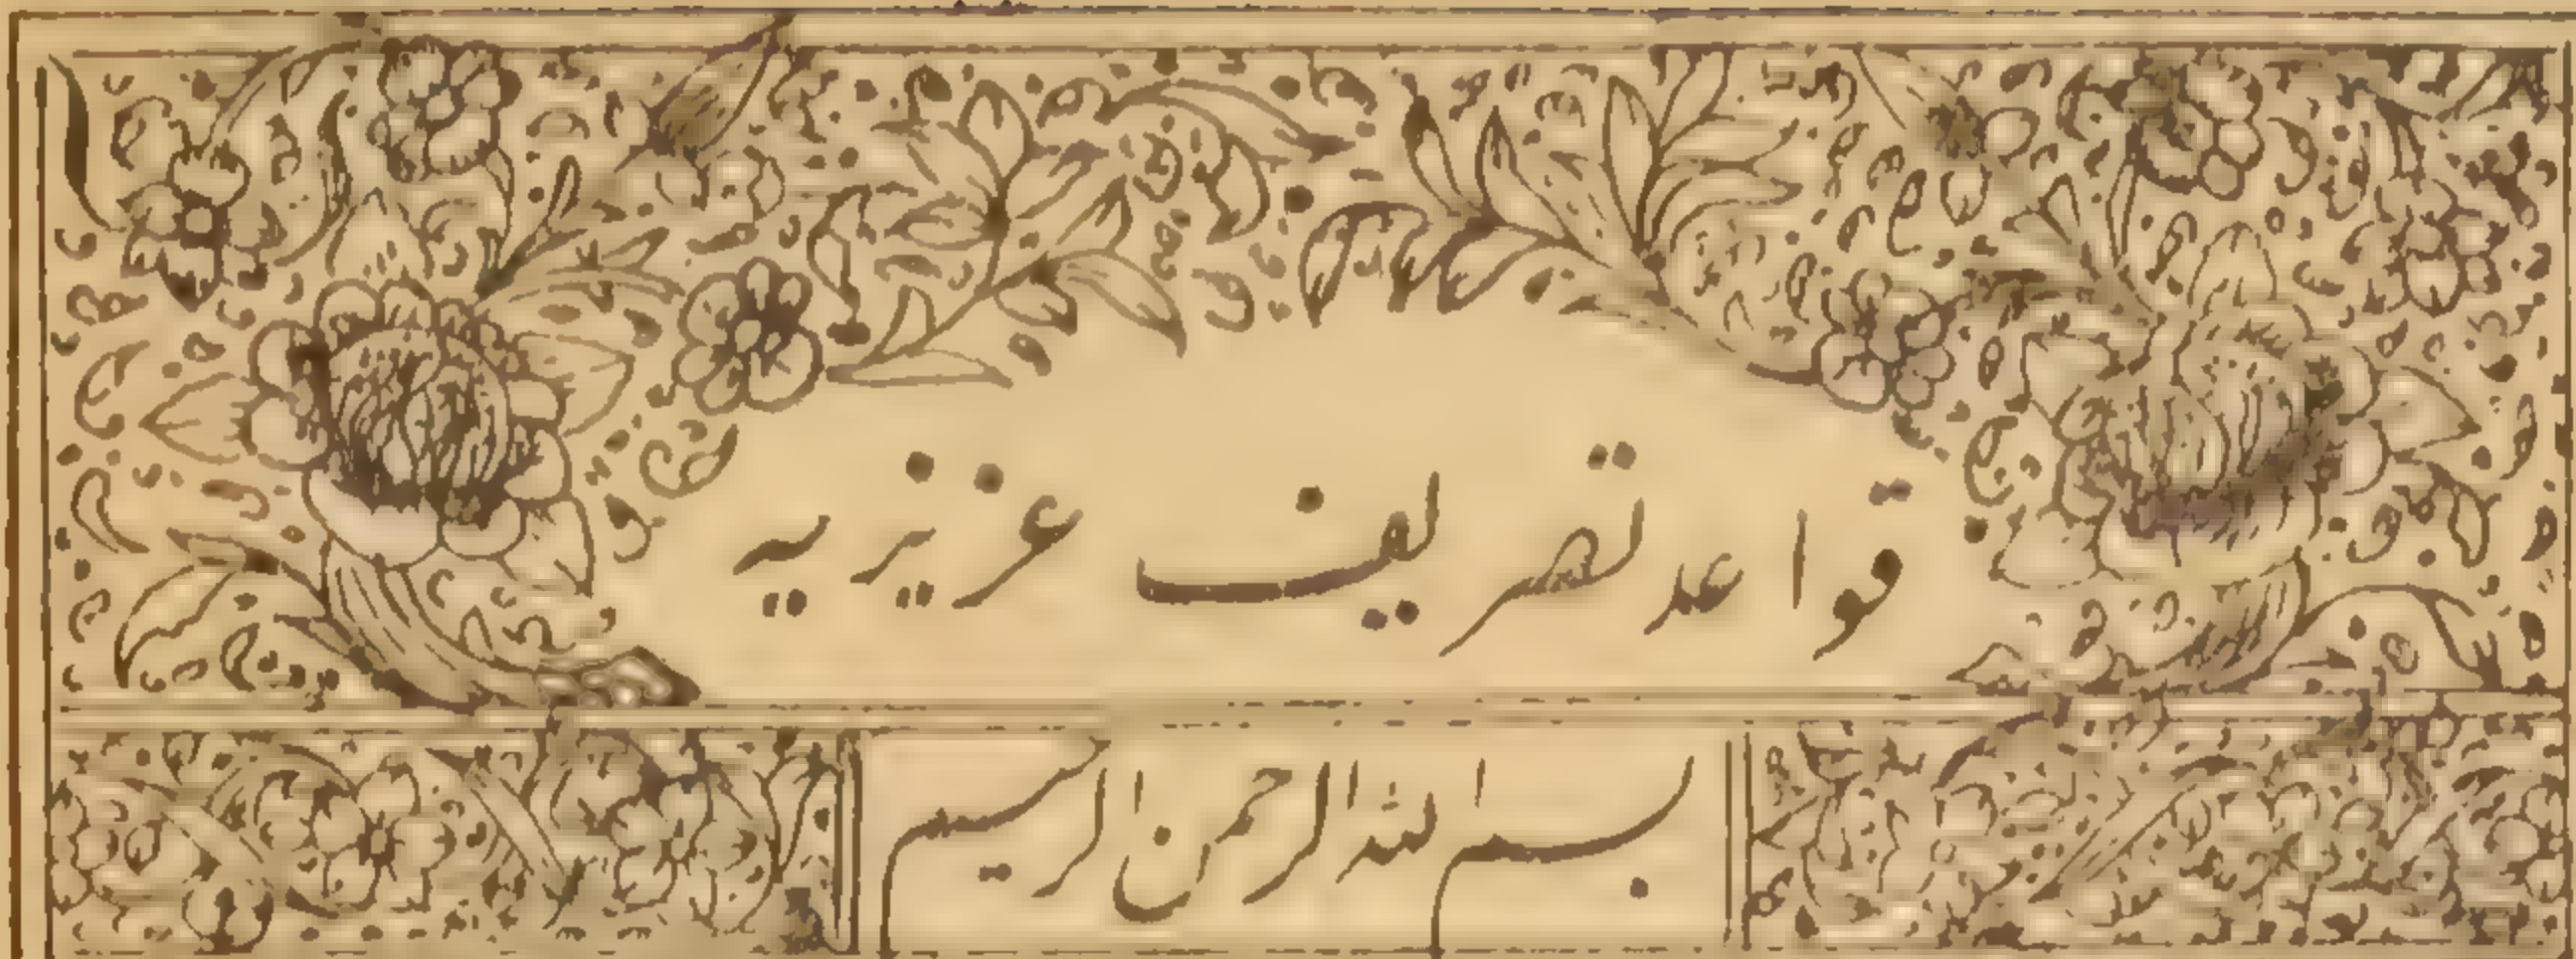 قواعد تصريف عزيزيه
بسم الله الرحمن الرحيم